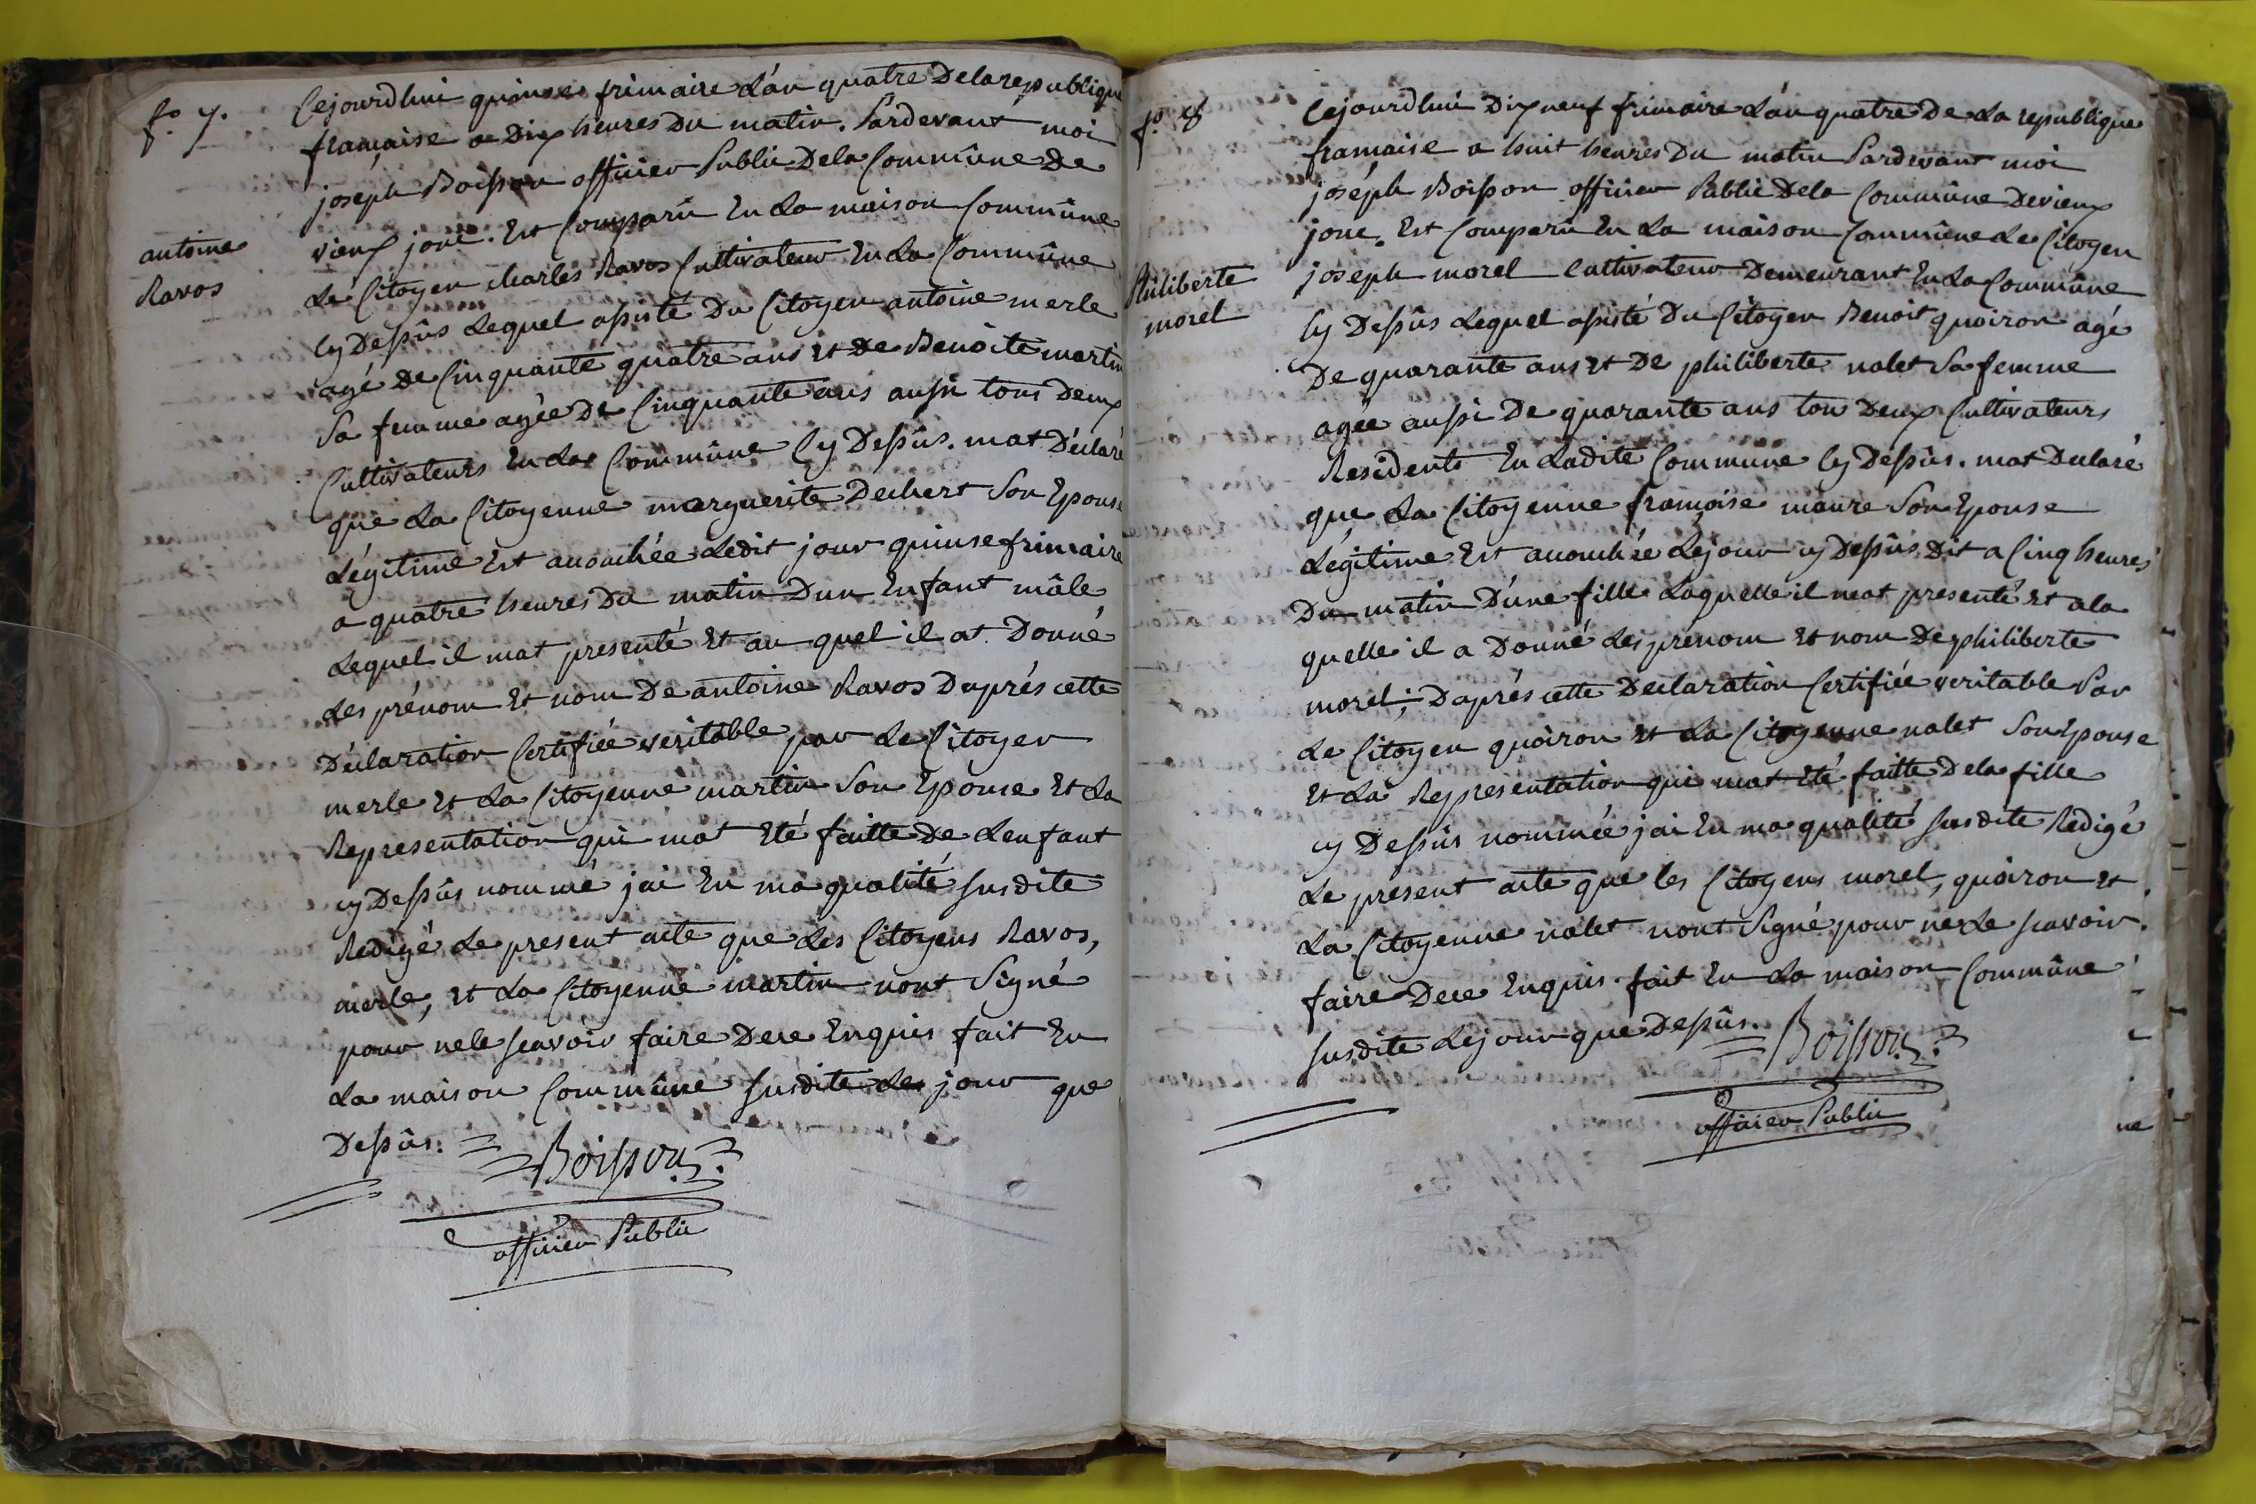 fo. 7.
Cejourdhui quinse frimaire L'an quatre Delarepublique
francaise a Dix heures Du matin. Pardevant moi
joseph Boisson officier Public Dela Commûne de
vieux joue. Est Comparû En La maison Commûne
antoine
Ravos
Le Citoyen charles Ravos Cultivateur En La Commûne
Cy Dessûs Lequel assisté Du Citoyen antoine merle
agé de Cinquante quatre ans et De Benoite martin
Sa femme agée De Cinquante ans aussi tous Deux
Cultivateurs En La Commûne Cy Dessûs. mat Déclaré
que La Citoyenne marguerite Dechert Son Epouse
Légitime Est acouchée Ledit jour quinse frimaire
a quatre heures Du matin Dun Enfant mâle
Lequel il mat presenté Et au quel il at Donné
Les prénom Et nom De antoine Ravos Daprés cette
Déclaration Certifiée veritable par Le Citoyen
merle Et La Citoyenne martin Son Epouse Et La
Representation qui mat Eté faitte De Lenfant
cy Dessûs nommé jai En ma qualité susdite
Redigé Le present acte que Les Citoyens Ravos,
merle, Et La Citoyenne martin nont Signé
pour nele scavoir faire Dece Enquis fait En
La maison Commûne susdite Le jour que
Dessûs.
Boisson
officier Public
fo. 8
Cejourdhui Dix neuf frimaire L'an quatre De La republique
francaise a huit heures Du matin Pardevant moi
joséph Boisson officier Public Dela Commûne Devieux
joue. Est Comparû En La maison Commûne Le Citoyen
Philiberte
morel
joseph morel Cultivateur Demeurant En La Commûne
Cy Dessûs Lequel assisté Du Citoyen Benoit quoiron agé
De quarante ans Et De philiberte nalet Sa femme
agée aussi De quarante ans tou Deux Cultivateurs
Residents En Ladite Commune Cy Dessûs. mat Declaré
que La Citoyenne francoise maure Son Epouse
Légitime Est acouchée Lejour cy Dessûs Dit a Cinq heures
Du matin D'une fille Laquelle il mat presenté Et ala
quelle il a Donné Les prenom Et nom De philiberte
morel; Daprés cette Declaration Certifiée veritable Par
Le Citoyen quoiron Et La Citoyenne nalet Son Epouse
Et La Representation qui mat Eté faitte Dela fille
cy Dessûs nommée jai En ma qualité susdite Redigé
Le present acte que les Citoyens morel, quoiron Et
La Citoyenne nalet nont Signé pour ne Le scavoir
faire Dece Enquis. fait En La maison Commûne
susdite Lejour que Dessûs.
Boisson
officier Public
ne